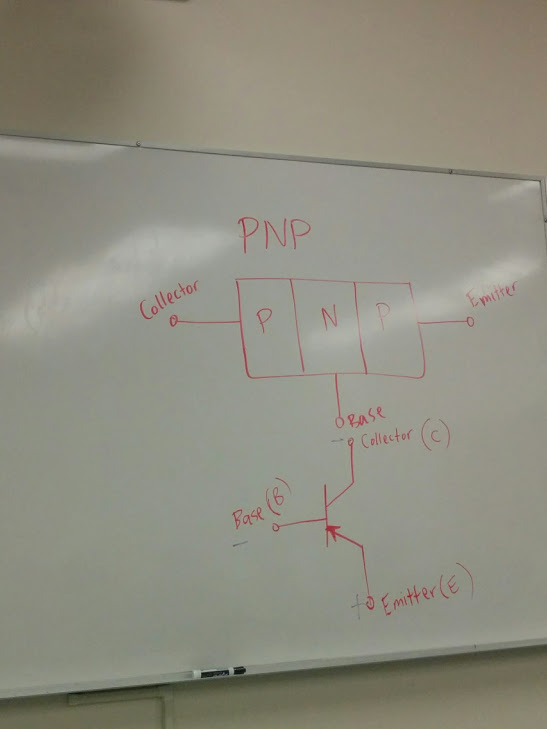 PNP
Collector
P N P
Emitter
Base
- Collector (C)
Base (B)
-
+ Emitter (E)